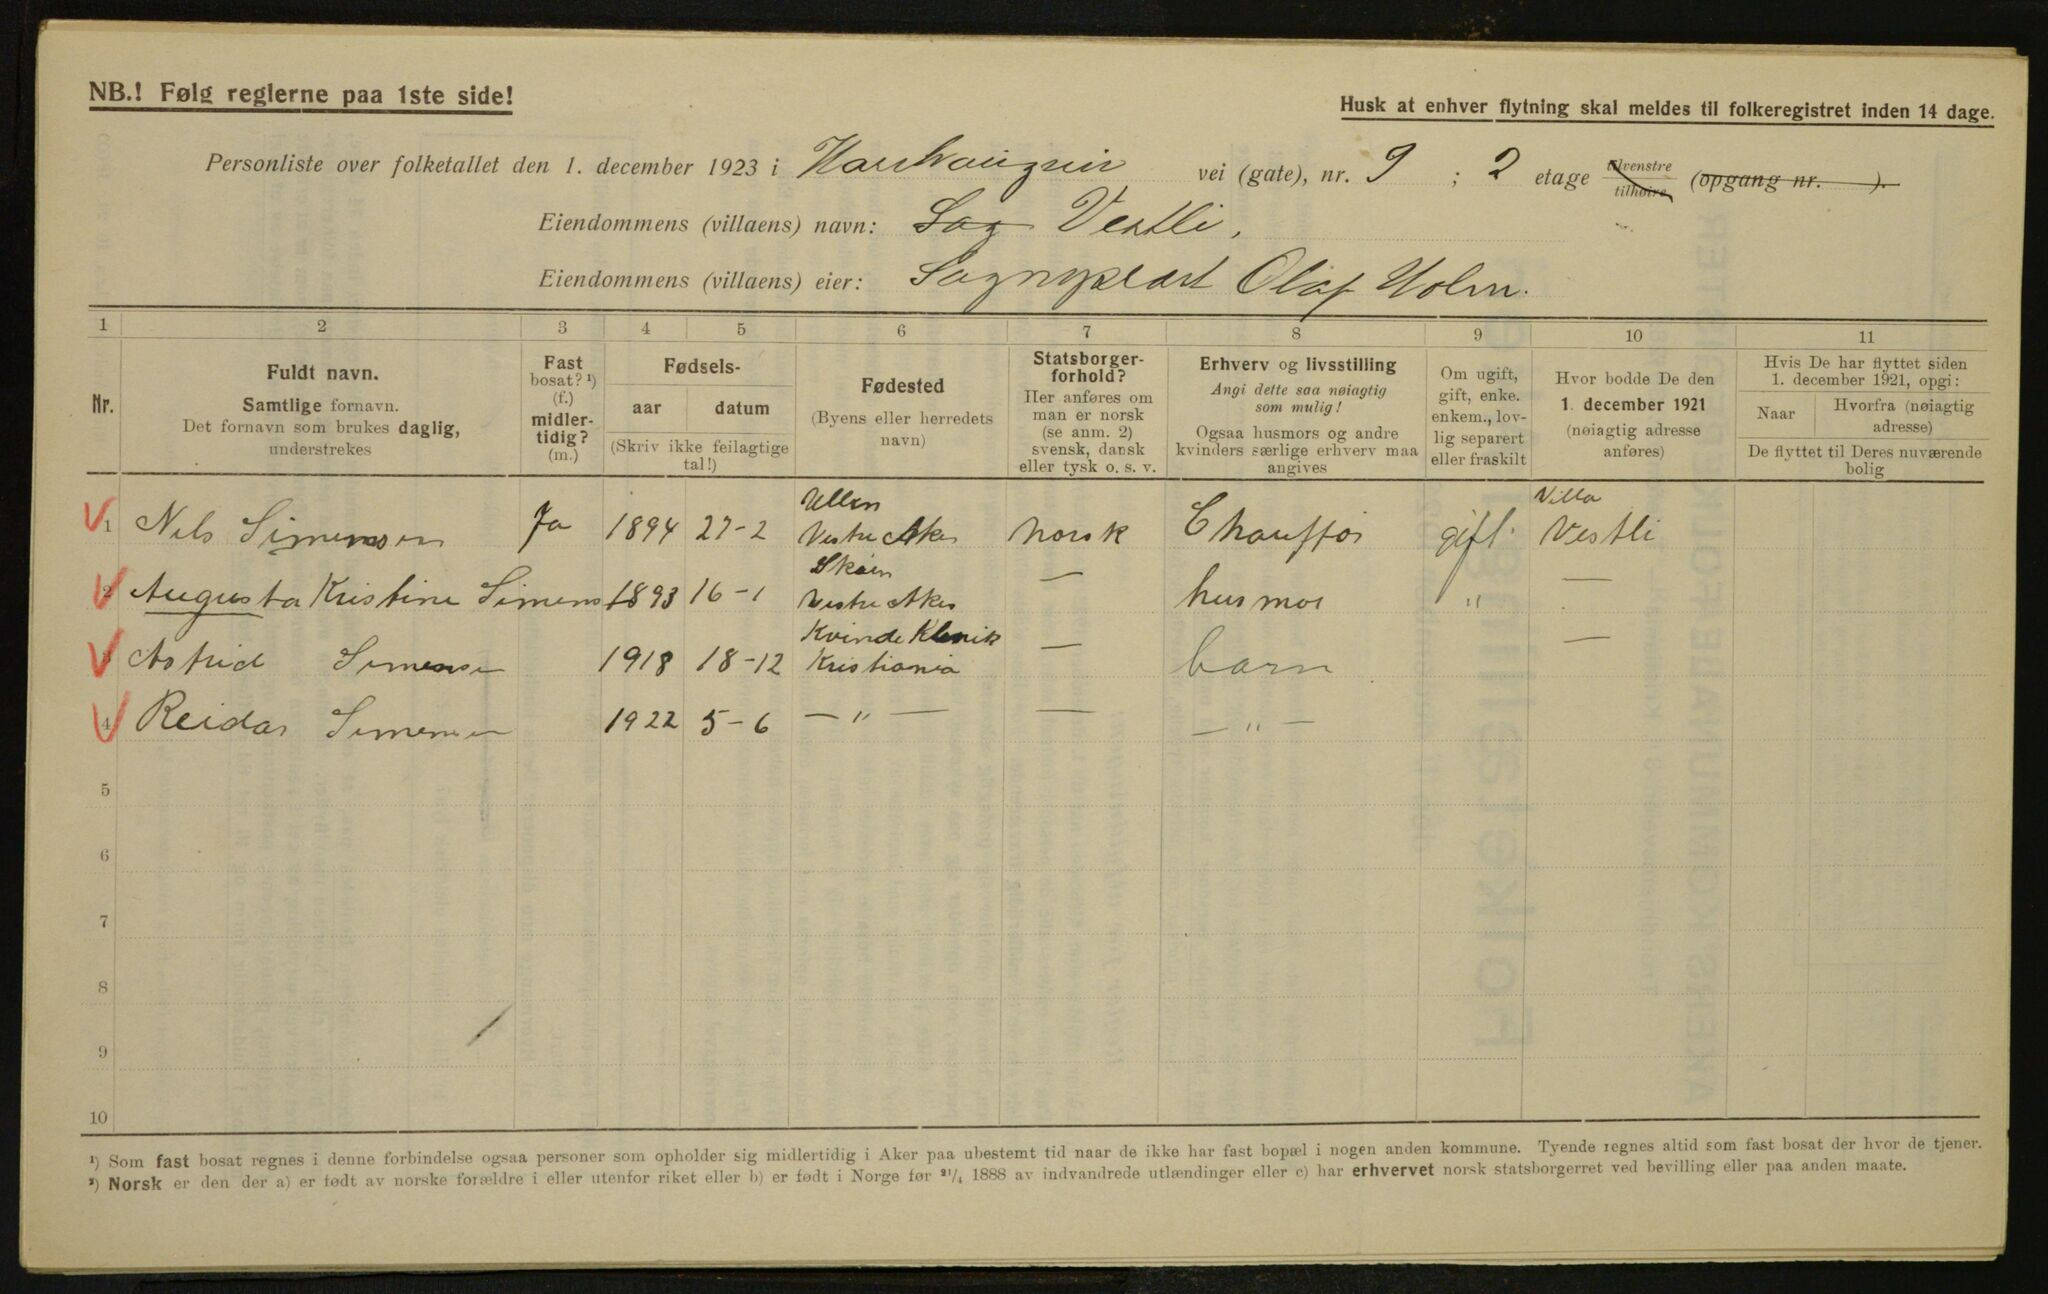 NB.! Følg reglerne paa 1ste side!
Husk at enhver flytning skal meldes til folkeregistret inden 14 dage.
Personliste over folketallet den 1. december 1923 i vei (gate), nr. 9 ; 2 etage tilvenstre tilhøire (opgang nr. ).
Eiendommens (villaens) navn: Sog Vestli,
Eiendommens (villaens) eier: Olaf Holm.
1 2 3 4 5 6 7 8 9 10 11
Nr.
Fuldt navn.
Samtlige fornavn.
Det fornavn som brukes daglig,
understrekes
Fast
bosat? ¹)
(f.)
midler-
tidig?
(m.)
Fødsels-
aar datum
(Skriv ikke feilagtige
tal!)
Fødested
(Byens eller herredets
navn)
Statsborger-
forhold?
Her anføres om
man er norsk
(se anm. 2)
svensk, dansk
eller tysk o. s. v.
Erhverv og livsstilling
Angi dette saa nøiagtig
som mulig!
Ogsaa husmors og andre
kvinders særlige erhverv maa
angives
Om ugift,
gift, enke.
enkem., lov-
lig separert
eller fraskilt
Hvor bodde De den
1. december 1921
(nøiagtig adresse
anføres)
Hvis De har flyttet siden
1. december 1921, opgi:
Naar
Hvorfra (nøiagtig
adresse)
De flyttet til Deres nuværende
bolig
1 Nils Simensen Ja 1894 27-2 Ullen Vestre Aker Norsk Chauffør gift. Villa Vestli
2 Augusta Kristine Simens 1893 16-1 Skøien Vestre Aker — husmor " —
3 Astrid Simensen 1918 18-12 Kvinde Klinik Kristiania — barn —
4 Reidar Simensen 1922 5-6 — " — — — " —
5
6
7
8
9
10
¹) Som fast bosat regnes i denne forbindelse ogsaa personer som opholder sig midlertidig i Aker paa ubestemt tid naar de ikke har fast bopæl i nogen anden kommune. Tyende regnes altid som fast bosat der hvor de tjener.
²) Norsk er den der a) er født av norske forældre i eller utenfor riket eller b) er født i Norge før 21/4 1888 av indvandrede utlændinger eller c) har erhvervet norsk statsborgerret ved bevilling eller paa anden maate.